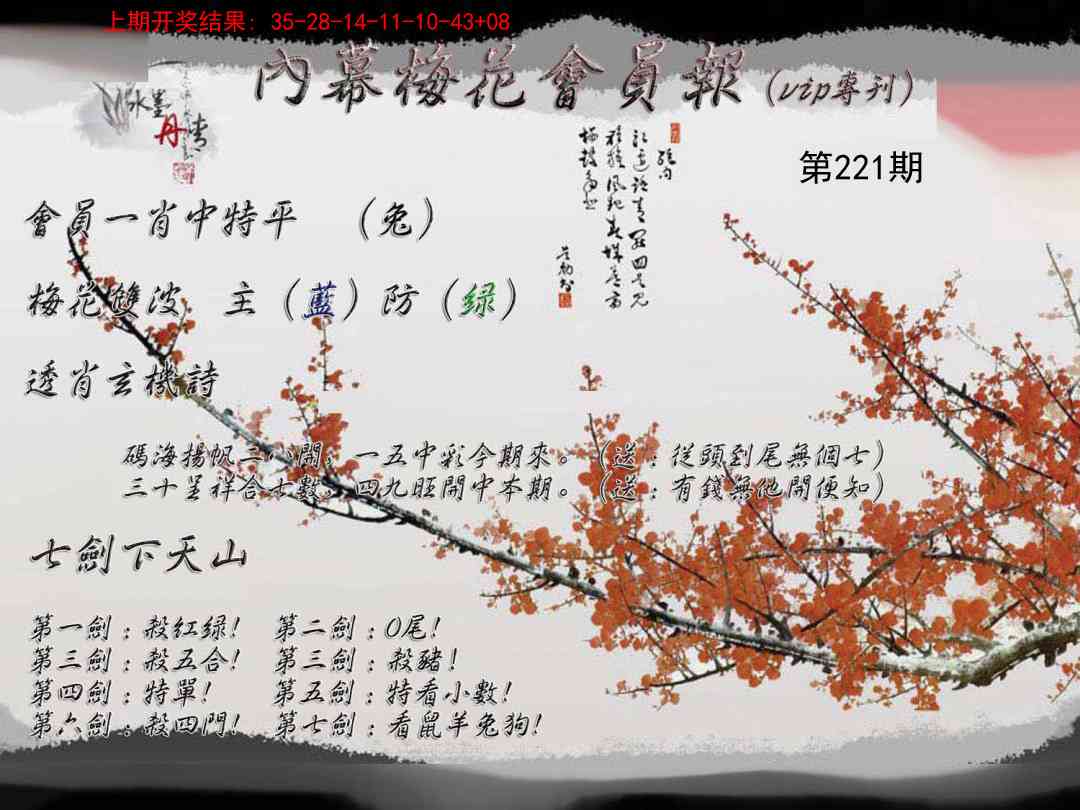 上期开奖结果: 35-28-14-11-10-43+08
內幕梅花會員報（vip專刊）
水墨
丹情
第221期
會員一肖中特平 （兔）
梅花雙波 主（藍）防（绿）
透肖玄機詩
碼海揚帆二八開，一五中彩今期來。（送：從頭到尾無個七）
三十呈祥合七數，四九旺開中本期。（送：有錢無他開便知）
七劍下天山
第一劍：殺紅绿！ 第二劍：0尾！
第三劍：殺五合！ 第三劍：殺豬！
第四劍：特單！ 第五劍：特看小數！
第六劍：殺四門！ 第七劍：看鼠羊兔狗！